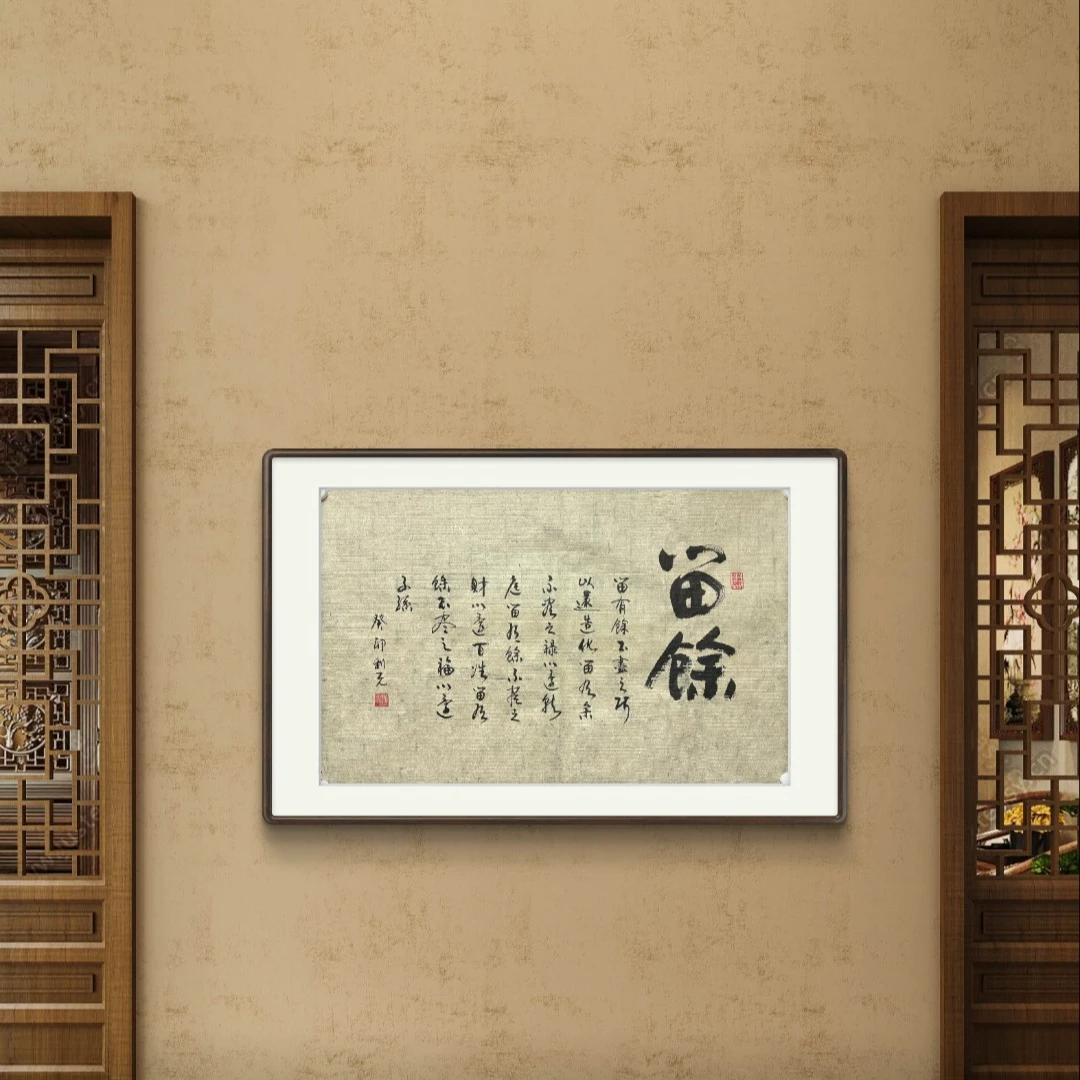 留餘
留有餘不盡之巧
以還造化留有余
不盡之祿以還朝
廷留有餘不盡之
財以還百姓留有
餘不盡之福以還
子孫
癸卯利元